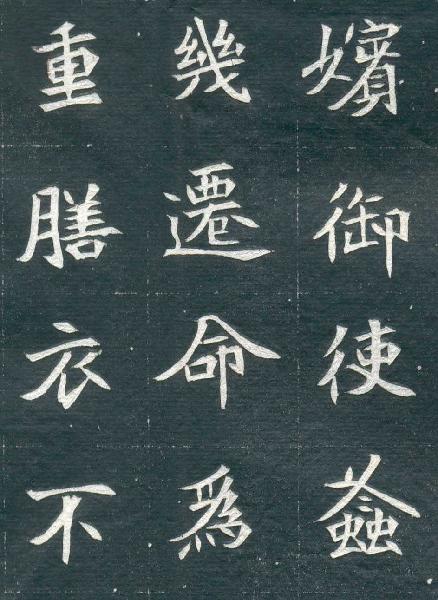 嬪御使螽
幾遷命爲
重膳衣不